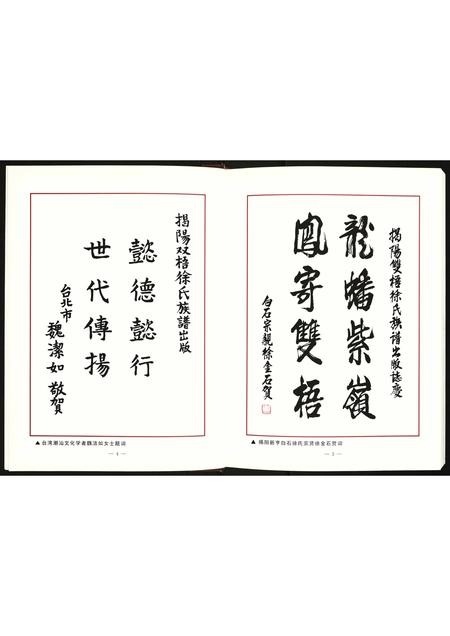 揭陽雙梧徐氏族譜出版誌慶
龍蟠紫嶺
鳳寄雙梧
白石宗親徐金石賀
▲揭阳新亨白石徐氏宗贤徐金石贺词
— 3 —
揭陽双梧徐氏族譜出版
懿德懿行
世代傳揚
台北市
魏潔如敬賀
▲台湾潮汕文化学者魏洁如女士题词
— 4 —